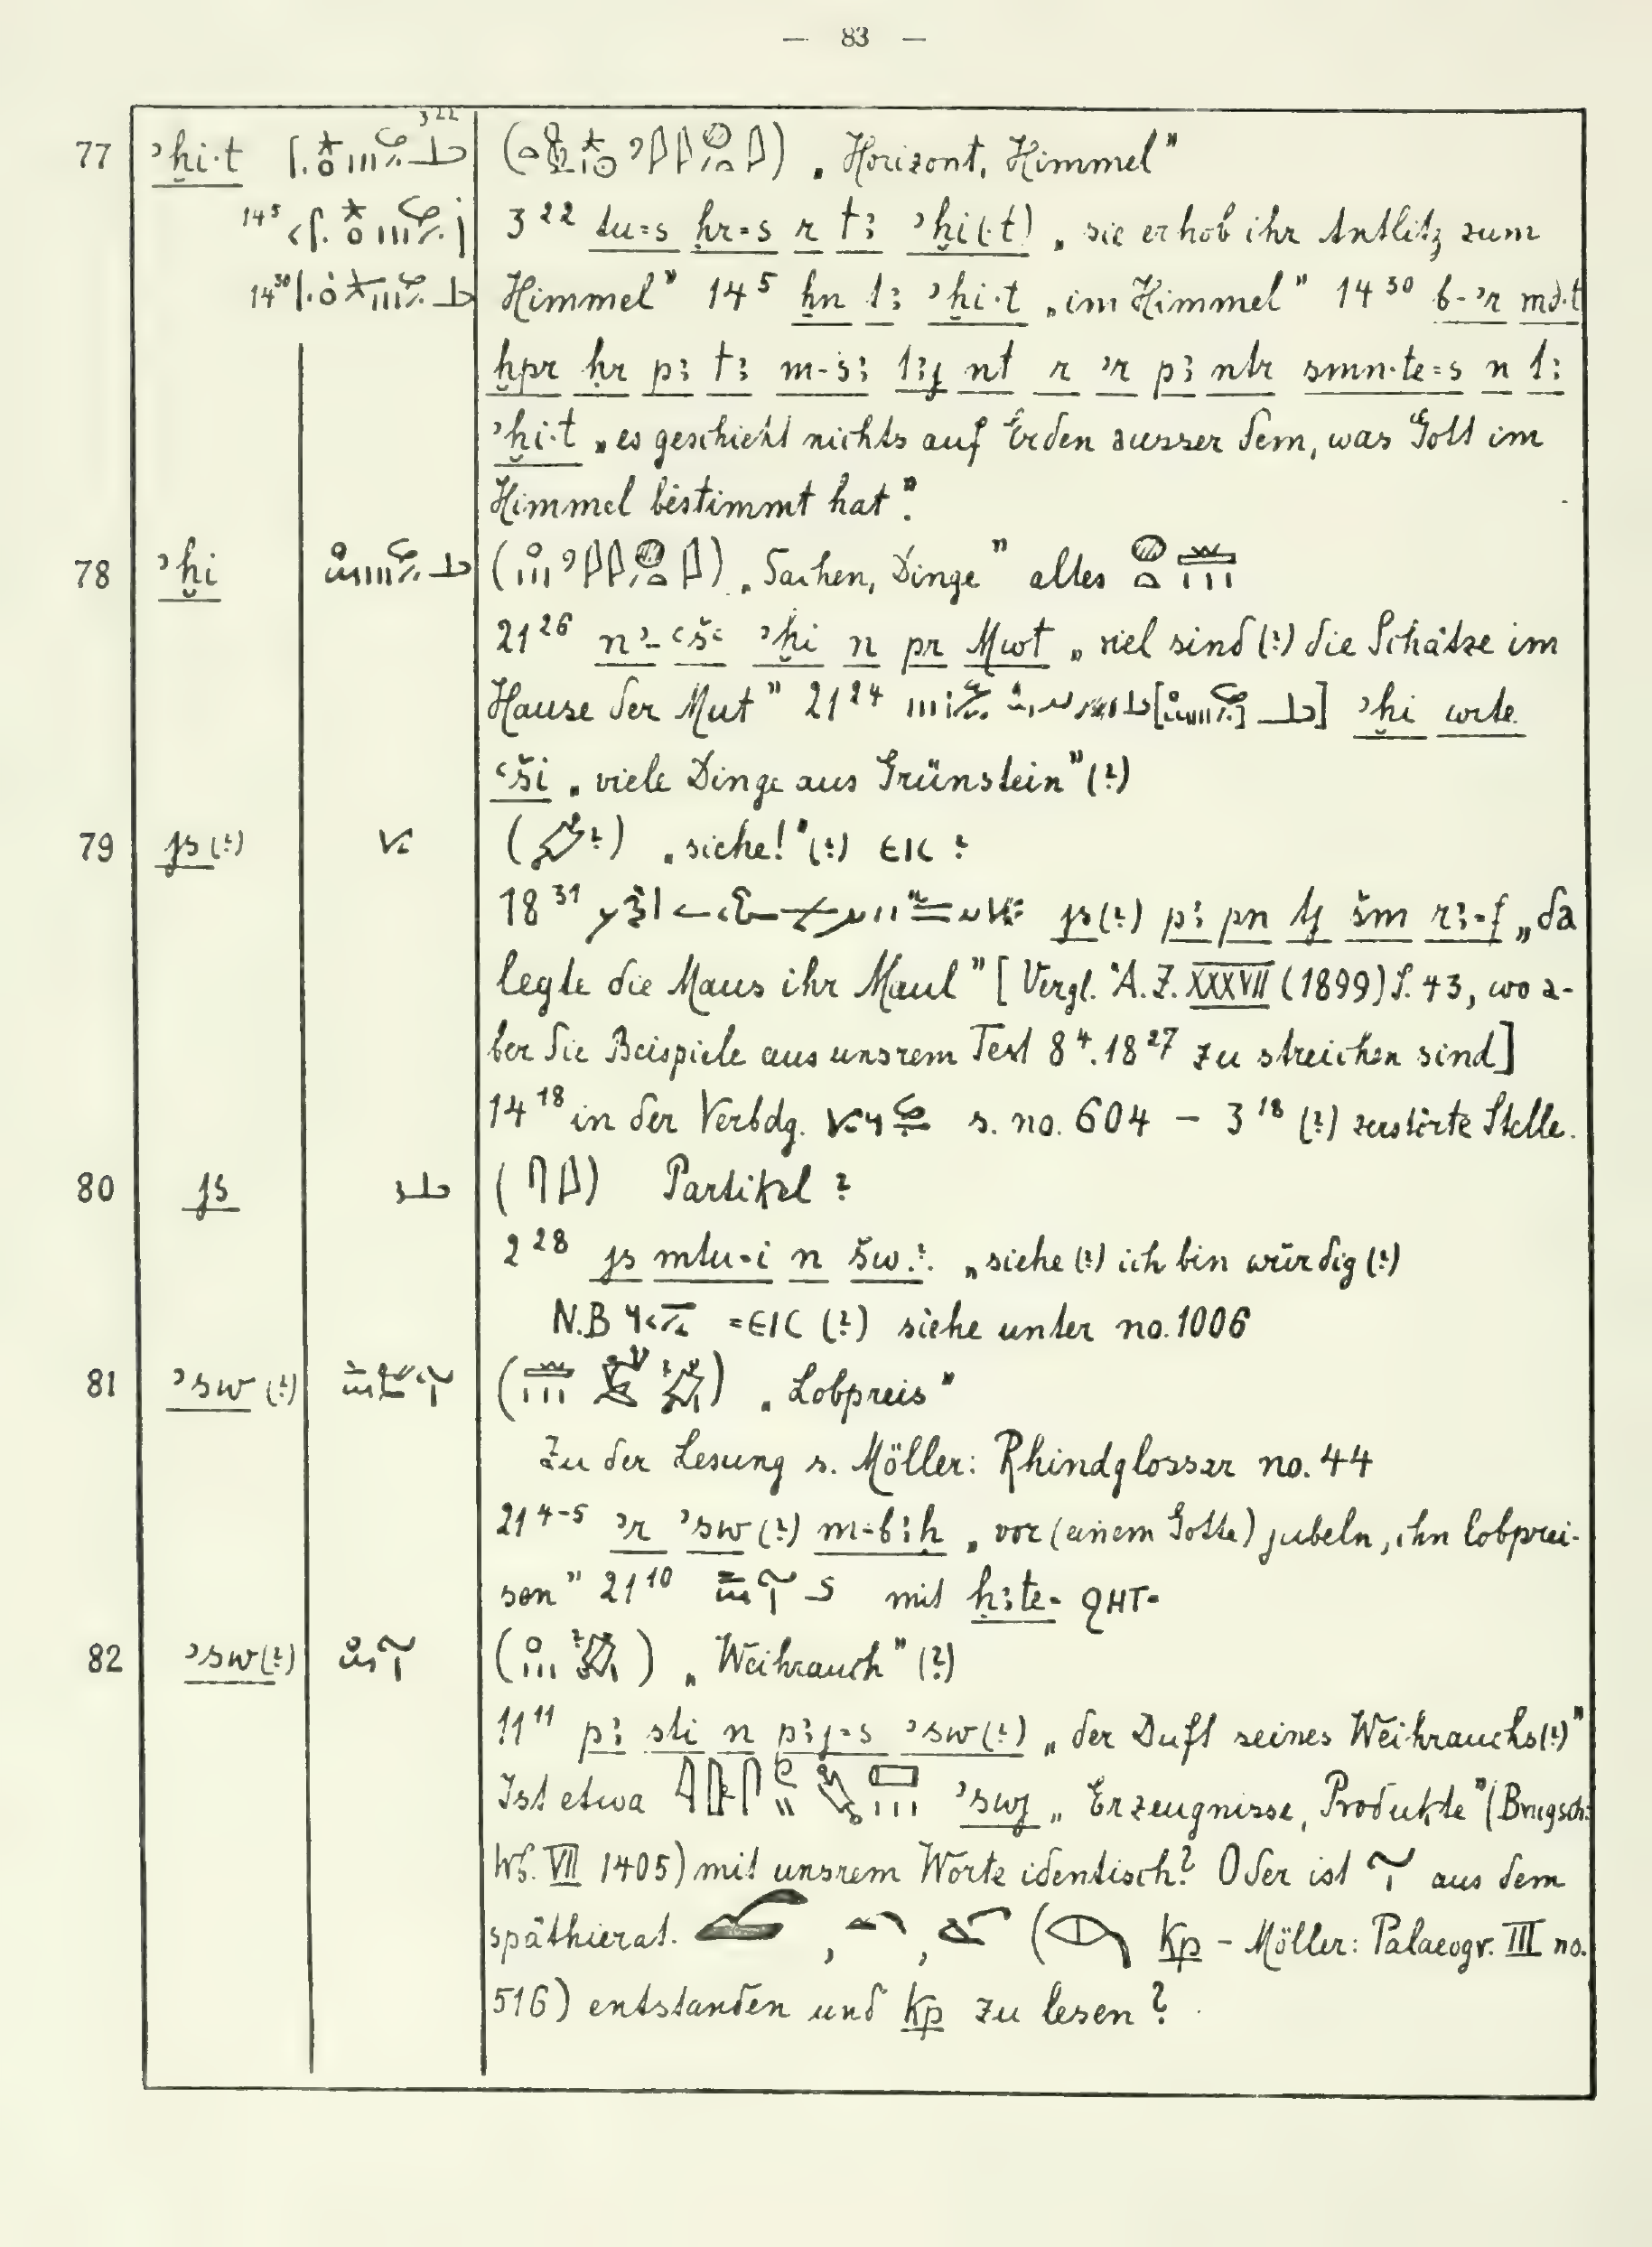 — 83 —
77 ꜣḫi·t 3²² ( ) „Horizont, Himmel”
14⁵ 3²² tu=s ḥr=s r tꜣ ꜣḫi(·t) „sie erhob ihr Antlitz zum
14³⁰ Himmel” 14⁵ ẖn tꜣ ꜣḫi·t „im Himmel” 14³⁰ b-ꜣr md·t
ḫpr ḥr pꜣ tꜣ m-sꜣ tꜣj nt r ꜣr pꜣ ntr smn·te=s n tꜣ
ꜣḫi·t „es geschieht nichts auf Erden ausser dem, was Gott im
Himmel bestimmt hat”
78 ꜣḫi ( ) „Sachen, Dinge” altes
21²⁶ nꜣ-ꜥšꜥ ꜣḫi n pr Mwt „viel sind (?) die Schätze im
Hause der Mut” 21²⁴ [ ] ꜣḫi wte
ꜥši „viele Dinge aus Grünstein” (?)
79 js (?) ( ?) „siehe!” (?) ⲉⲓⲥ ?
18³¹ js (?) pꜣ pn tj šm rꜣ=f „da
legte die Maus ihr Maul” [Vergl. Ä.Z. XXXVII (1899) S. 43, wo a-
ber die Beispiele aus unsrem Text 8⁴. 18²⁷ zu streichen sind]
14¹⁸ in der Verbdg. s. no. 604 – 3¹⁸ (?) zerstörte Stelle.
80 js ( ) Partikel ?
2²⁸ js mtu=i n šw.?. „siehe (?) ich bin würdig (?)
N.B = ⲉⲓⲥ (?) siehe unter no. 1006
81 ꜣsw (?) ( ) „Lobpreis”
Zu der Lesung s. Möller: Rhindglossar no. 44
21⁴⁻⁵ ꜣr ꜣsw (?) m-bꜣḥ „vor (einem Gotte) jubeln, ihn lobprei-
sen” 21¹⁰ mit ḥꜣte= ϩⲏⲧ=
82 ꜣsw (?) ( ) „Weihrauch” (?)
11¹¹ pꜣ sti n pꜣj=s ꜣsw (?) „der Duft seines Weihrauchs (?)”
Ist etwa ꜣswj „Erzeugnisse, Produkte” (Brugsch:
Wb. VII 1405) mit unsrem Worte identisch? Oder ist aus dem
späthierat. , , ( Kp – Möller: Palaeogr. III no.
516) entstanden und Kp zu lesen?